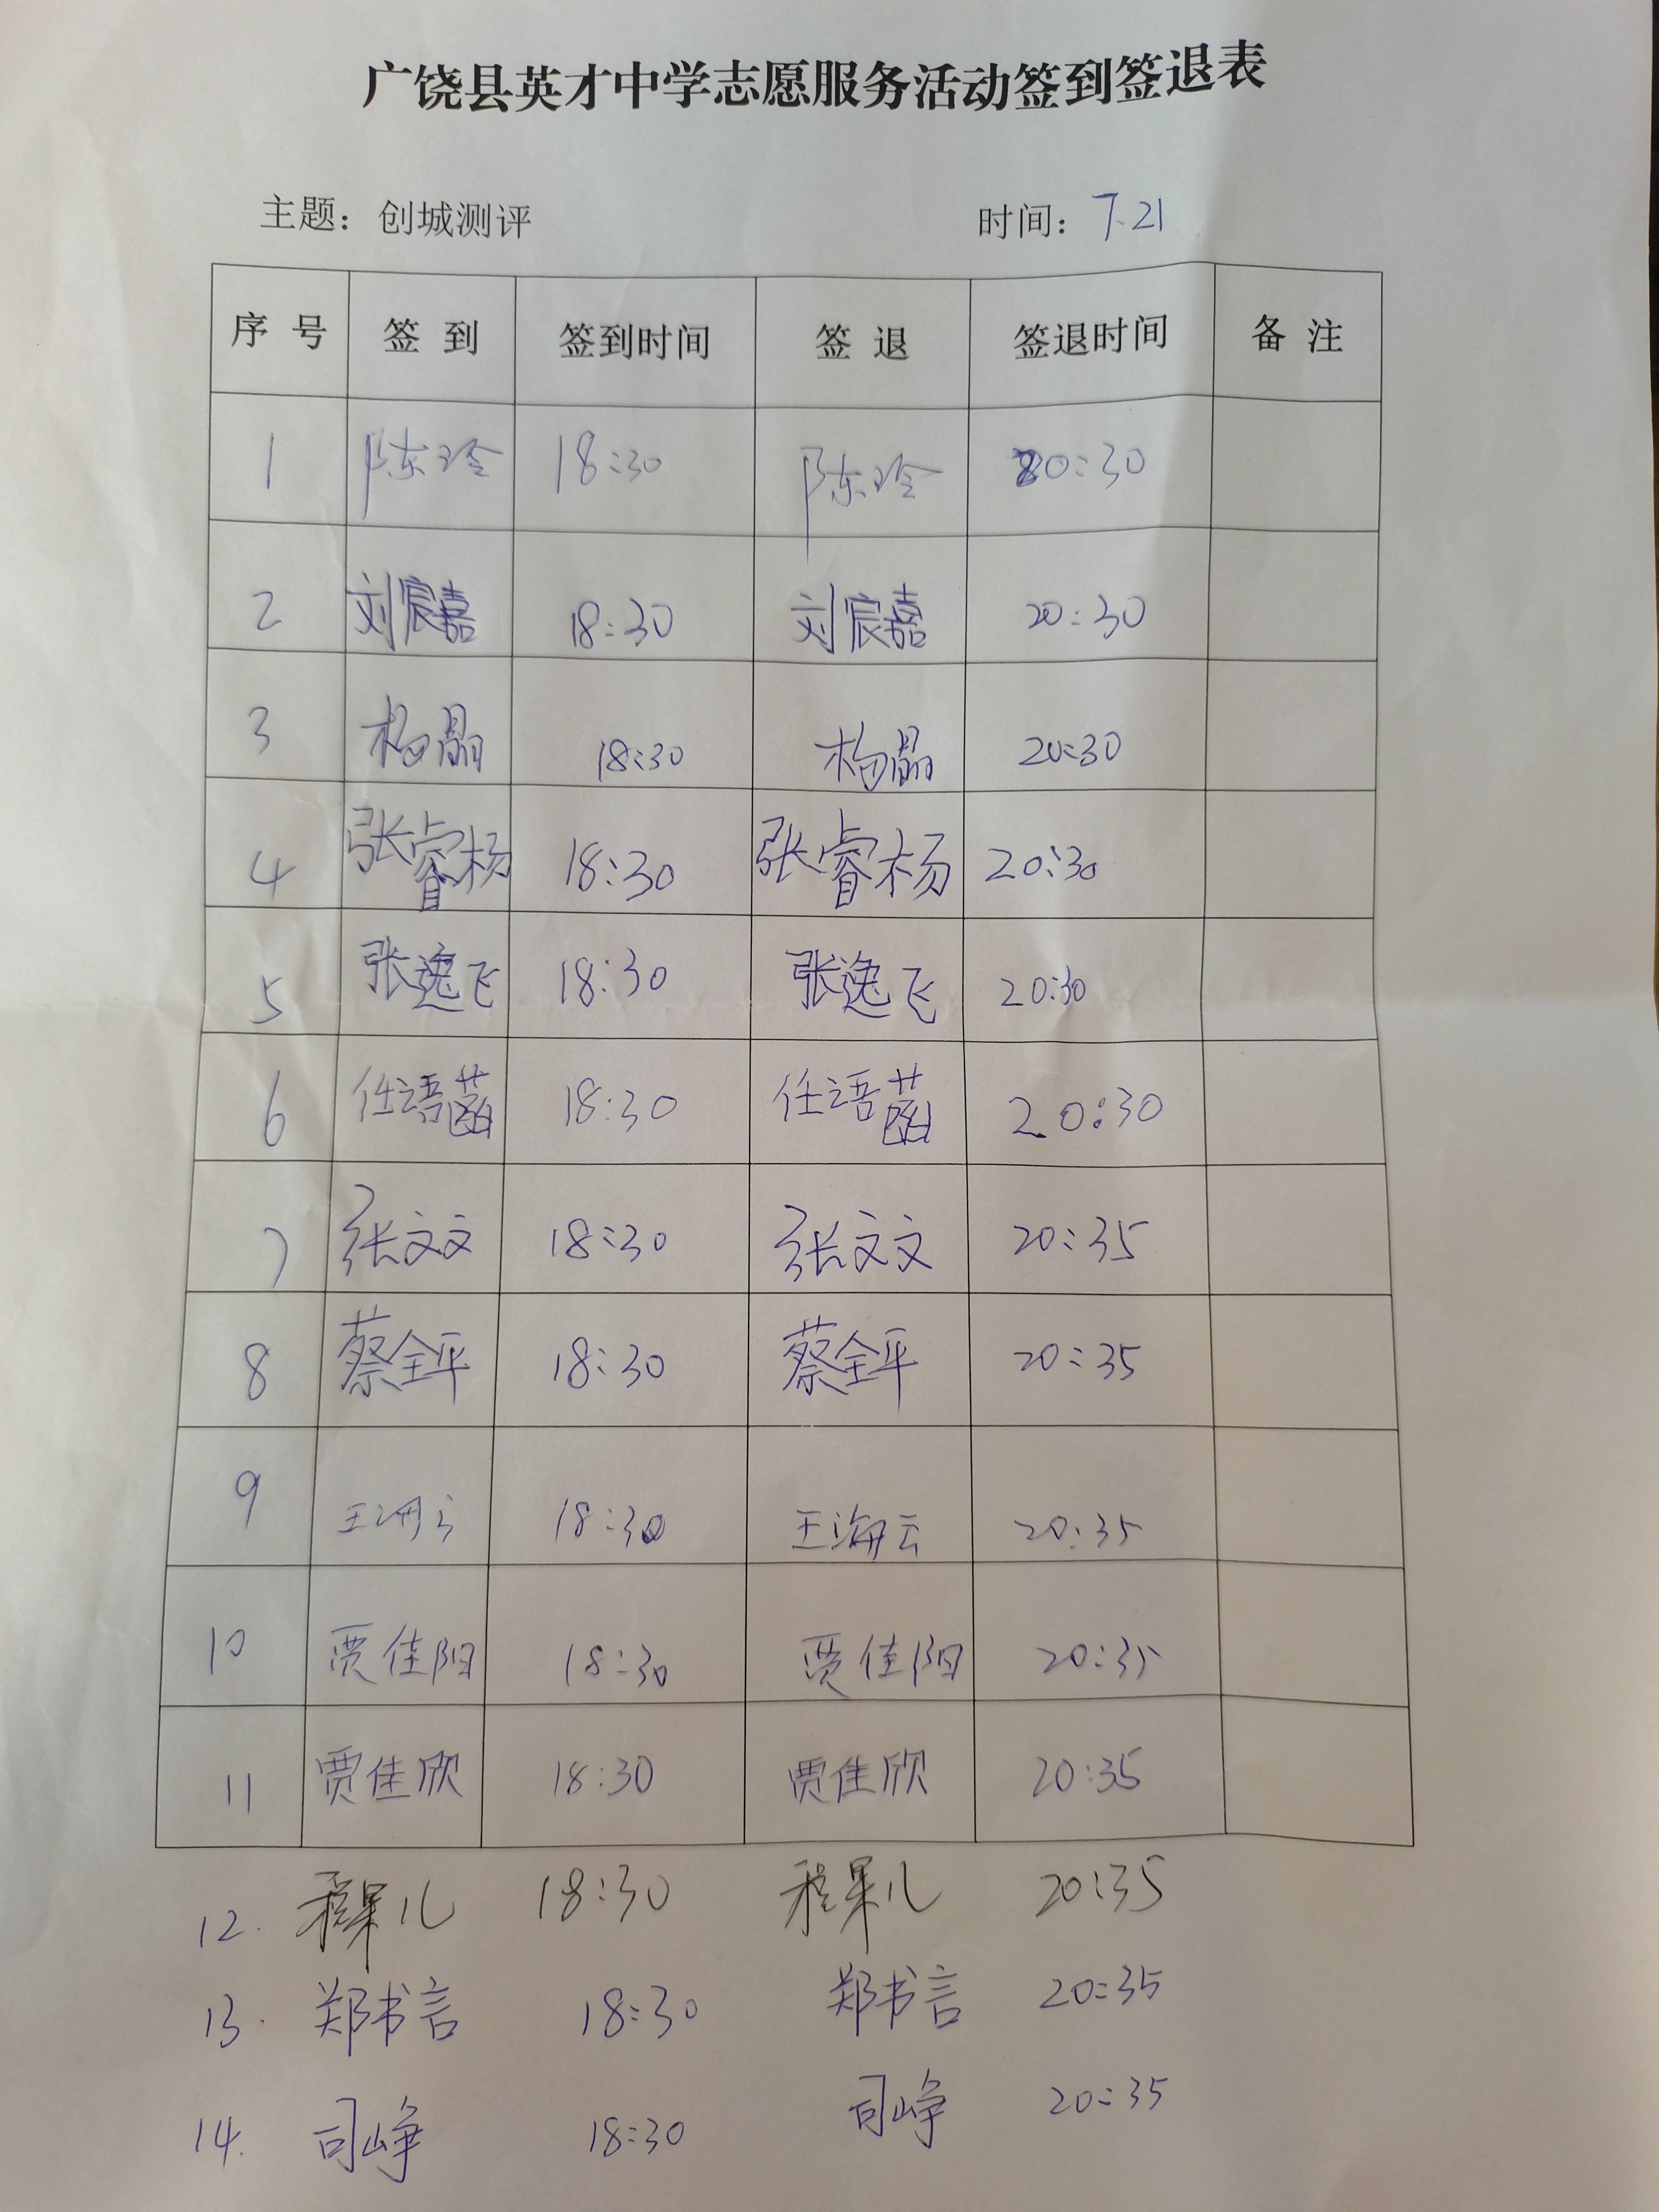 广饶县英才中学志愿服务活动签到签退表
主题：创城测评 时间：7.21
序号 签到 签到时间 签退 签退时间 备注
1 陈玲 18:30 陈玲 20:30
2 刘宸嘉 18:30 刘宸嘉 20:30
3 杨晶 18:30 杨晶 20:30
4 张睿杨 18:30 张睿杨 20:30
5 张逸飞 18:30 张逸飞 20:30
6 任语菡 18:30 任语菡 20:30
7 张文文 18:30 张文文 20:35
8 蔡全平 18:30 蔡全平 20:35
9 王海云 18:30 王海云 20:35
10 贾佳阳 18:30 贾佳阳 20:35
11 贾佳欣 18:30 贾佳欣 20:35
12. 程果儿 18:30 程果儿 20:35
13. 郑书言 18:30 郑书言 20:35
14. 司峥 18:30 司峥 20:35